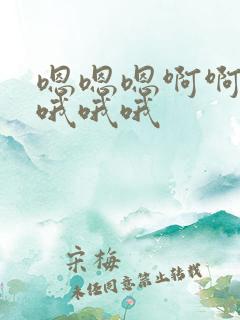 嗯嗯嗯啊啊
哦哦哦
宋梅
未经同意禁止转载